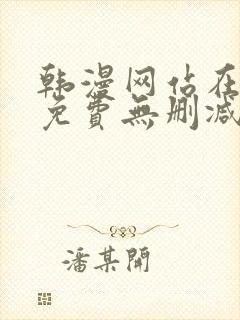 韩漫网站在
免費無删减
潘某開